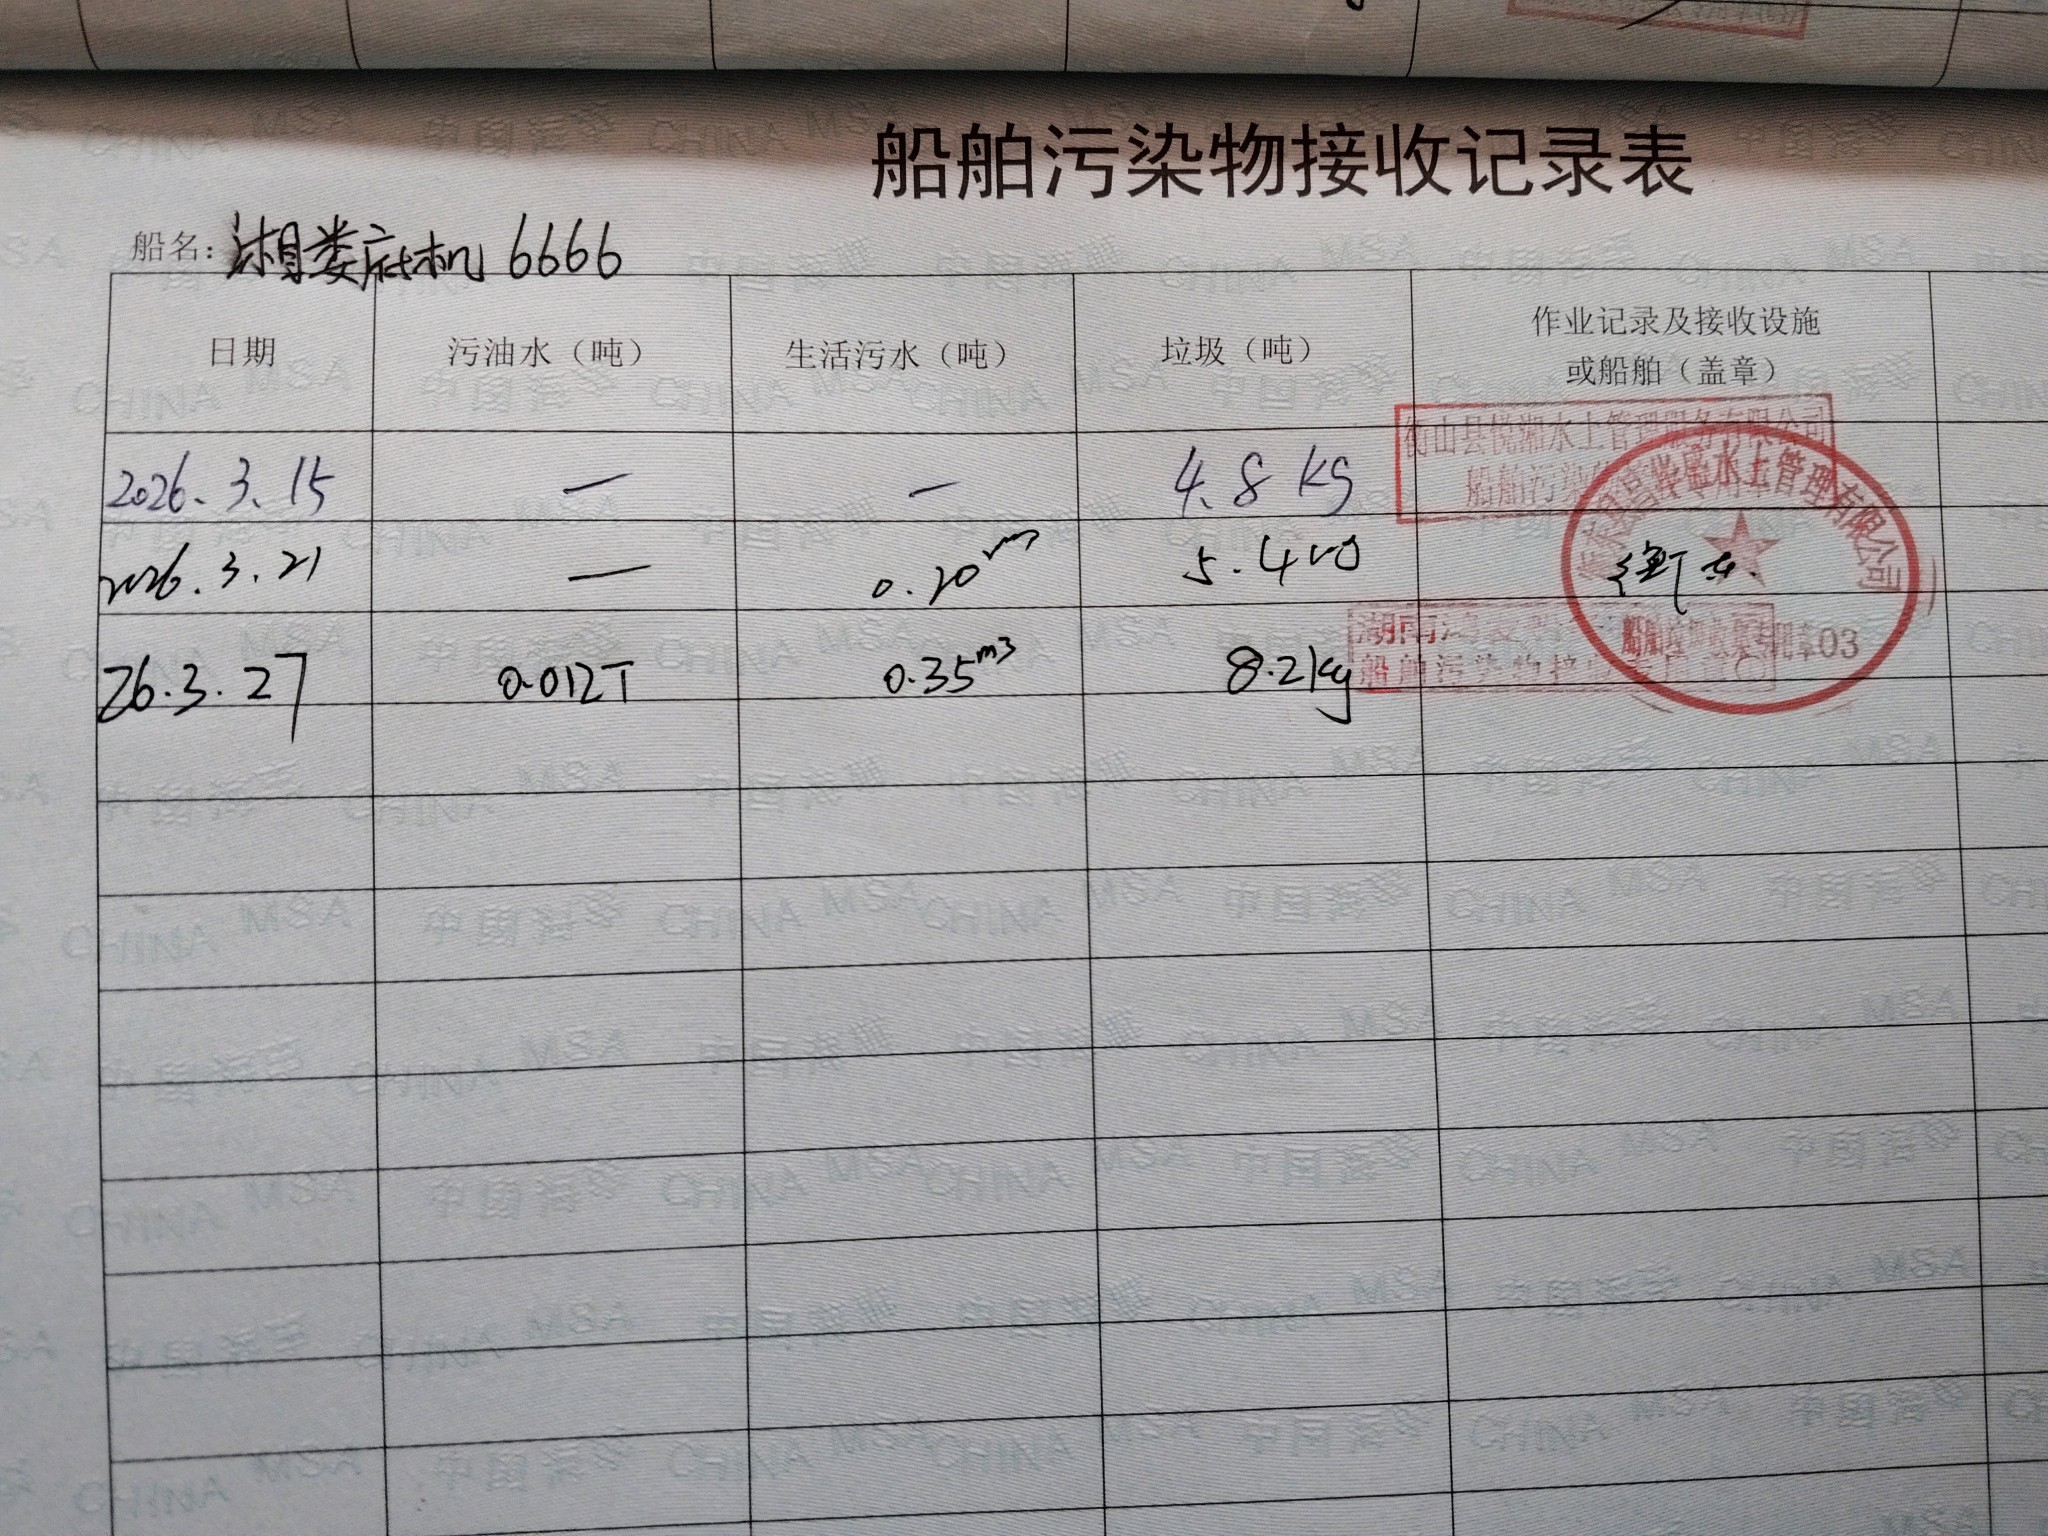 船舶污染物接收记录表
船名：湘娄底机 6666
日期 污油水（吨） 生活污水（吨） 垃圾（吨） 作业记录及接收设施
或船舶（盖章）
2026.3.15 — — 4.8 kg
衡山县悦湘水上管理服务有限公司
船舶污染
2026.3.21 — 0.20 5.4
衡东
水上管理有限公司
船舶垃圾收集专用章03
26.3.27 0.012T 0.35m3 8.2kg
湖南
船舶污染物接收
中国海事
CHINA MSA